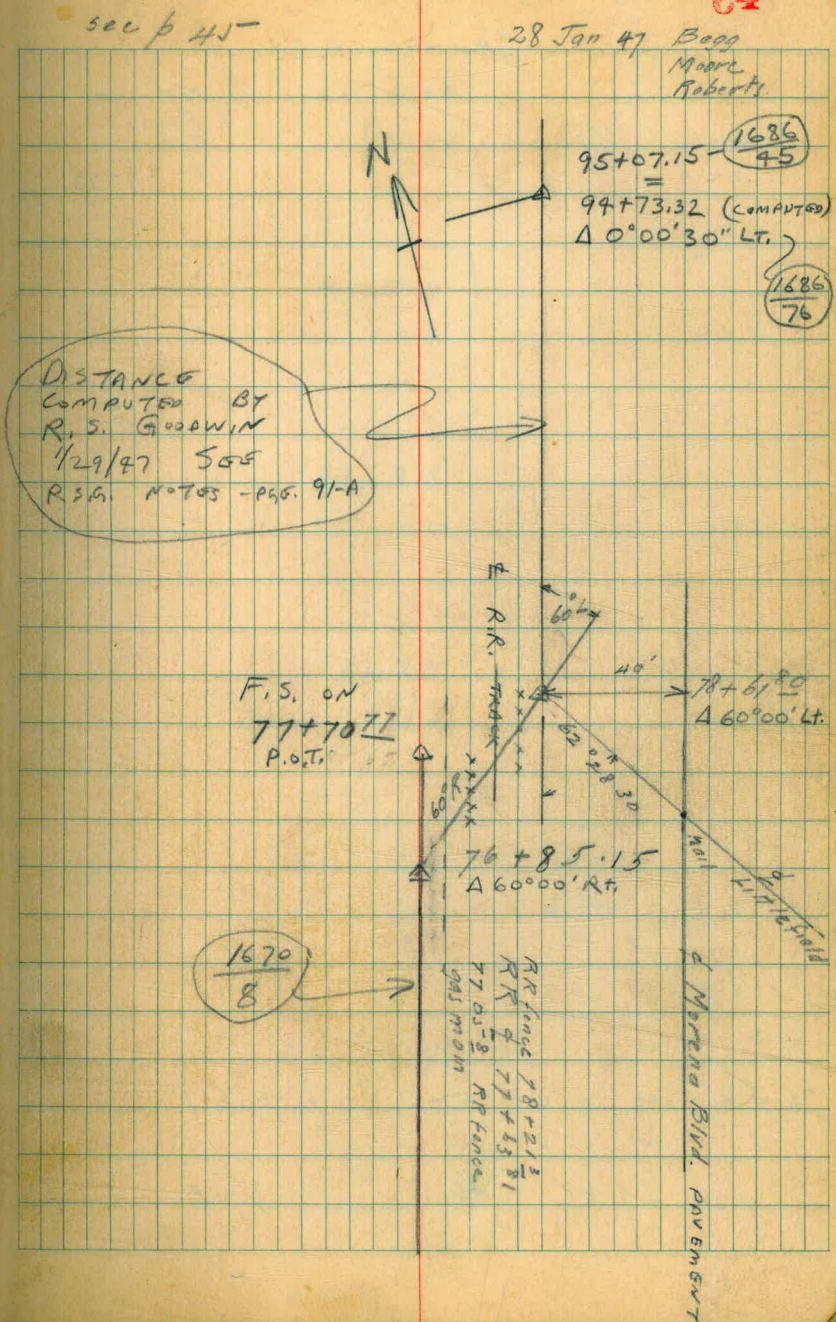 64
see p 45
28 Jan 47 Begg
Moore
Roberts
N
95+07.15 1686/45
=
94+73.32 (COMPUTED)
Δ 0°00'30" LT.
1686/76
DISTANCE
COMPUTED BY
R. S. GOODWIN
1/29/47 SEE
RSG. NOTES - PGE. 91-A
℄ R.R. TRACK
60°
40'
78+61 80
Δ 60°00' Lt.
F.S. ON
77+70 77
P.O.T.
60°
62°08'30
76+85.15
Δ 60°00' Rt.
nail
℄ Littlefield
1670/8
RR fence 78+21 3
RR ℄ 77+63 81
77 05 8 RR fence
gas main
℄ Morena Blvd. PAVEMENT